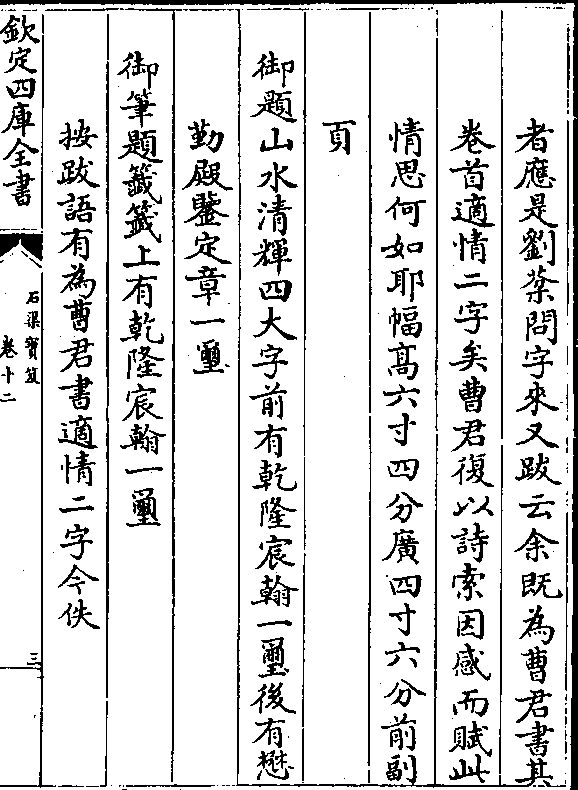 者應是劉棻問字來又跋云余既為曹君書其
卷首適情二字矣曹君復以詩索因感而賦此
情思何如耶幅高六寸四分廣四寸六分前副
頁
御題山水清輝四大字前有乾隆宸翰一璽後有懋
勤殿鑒定章一璽
御筆題籤籤上有乾隆宸翰一璽
按跋語有為曹君書適情二字今佚
欽定四庫全書
石渠寶笈
卷十二
三